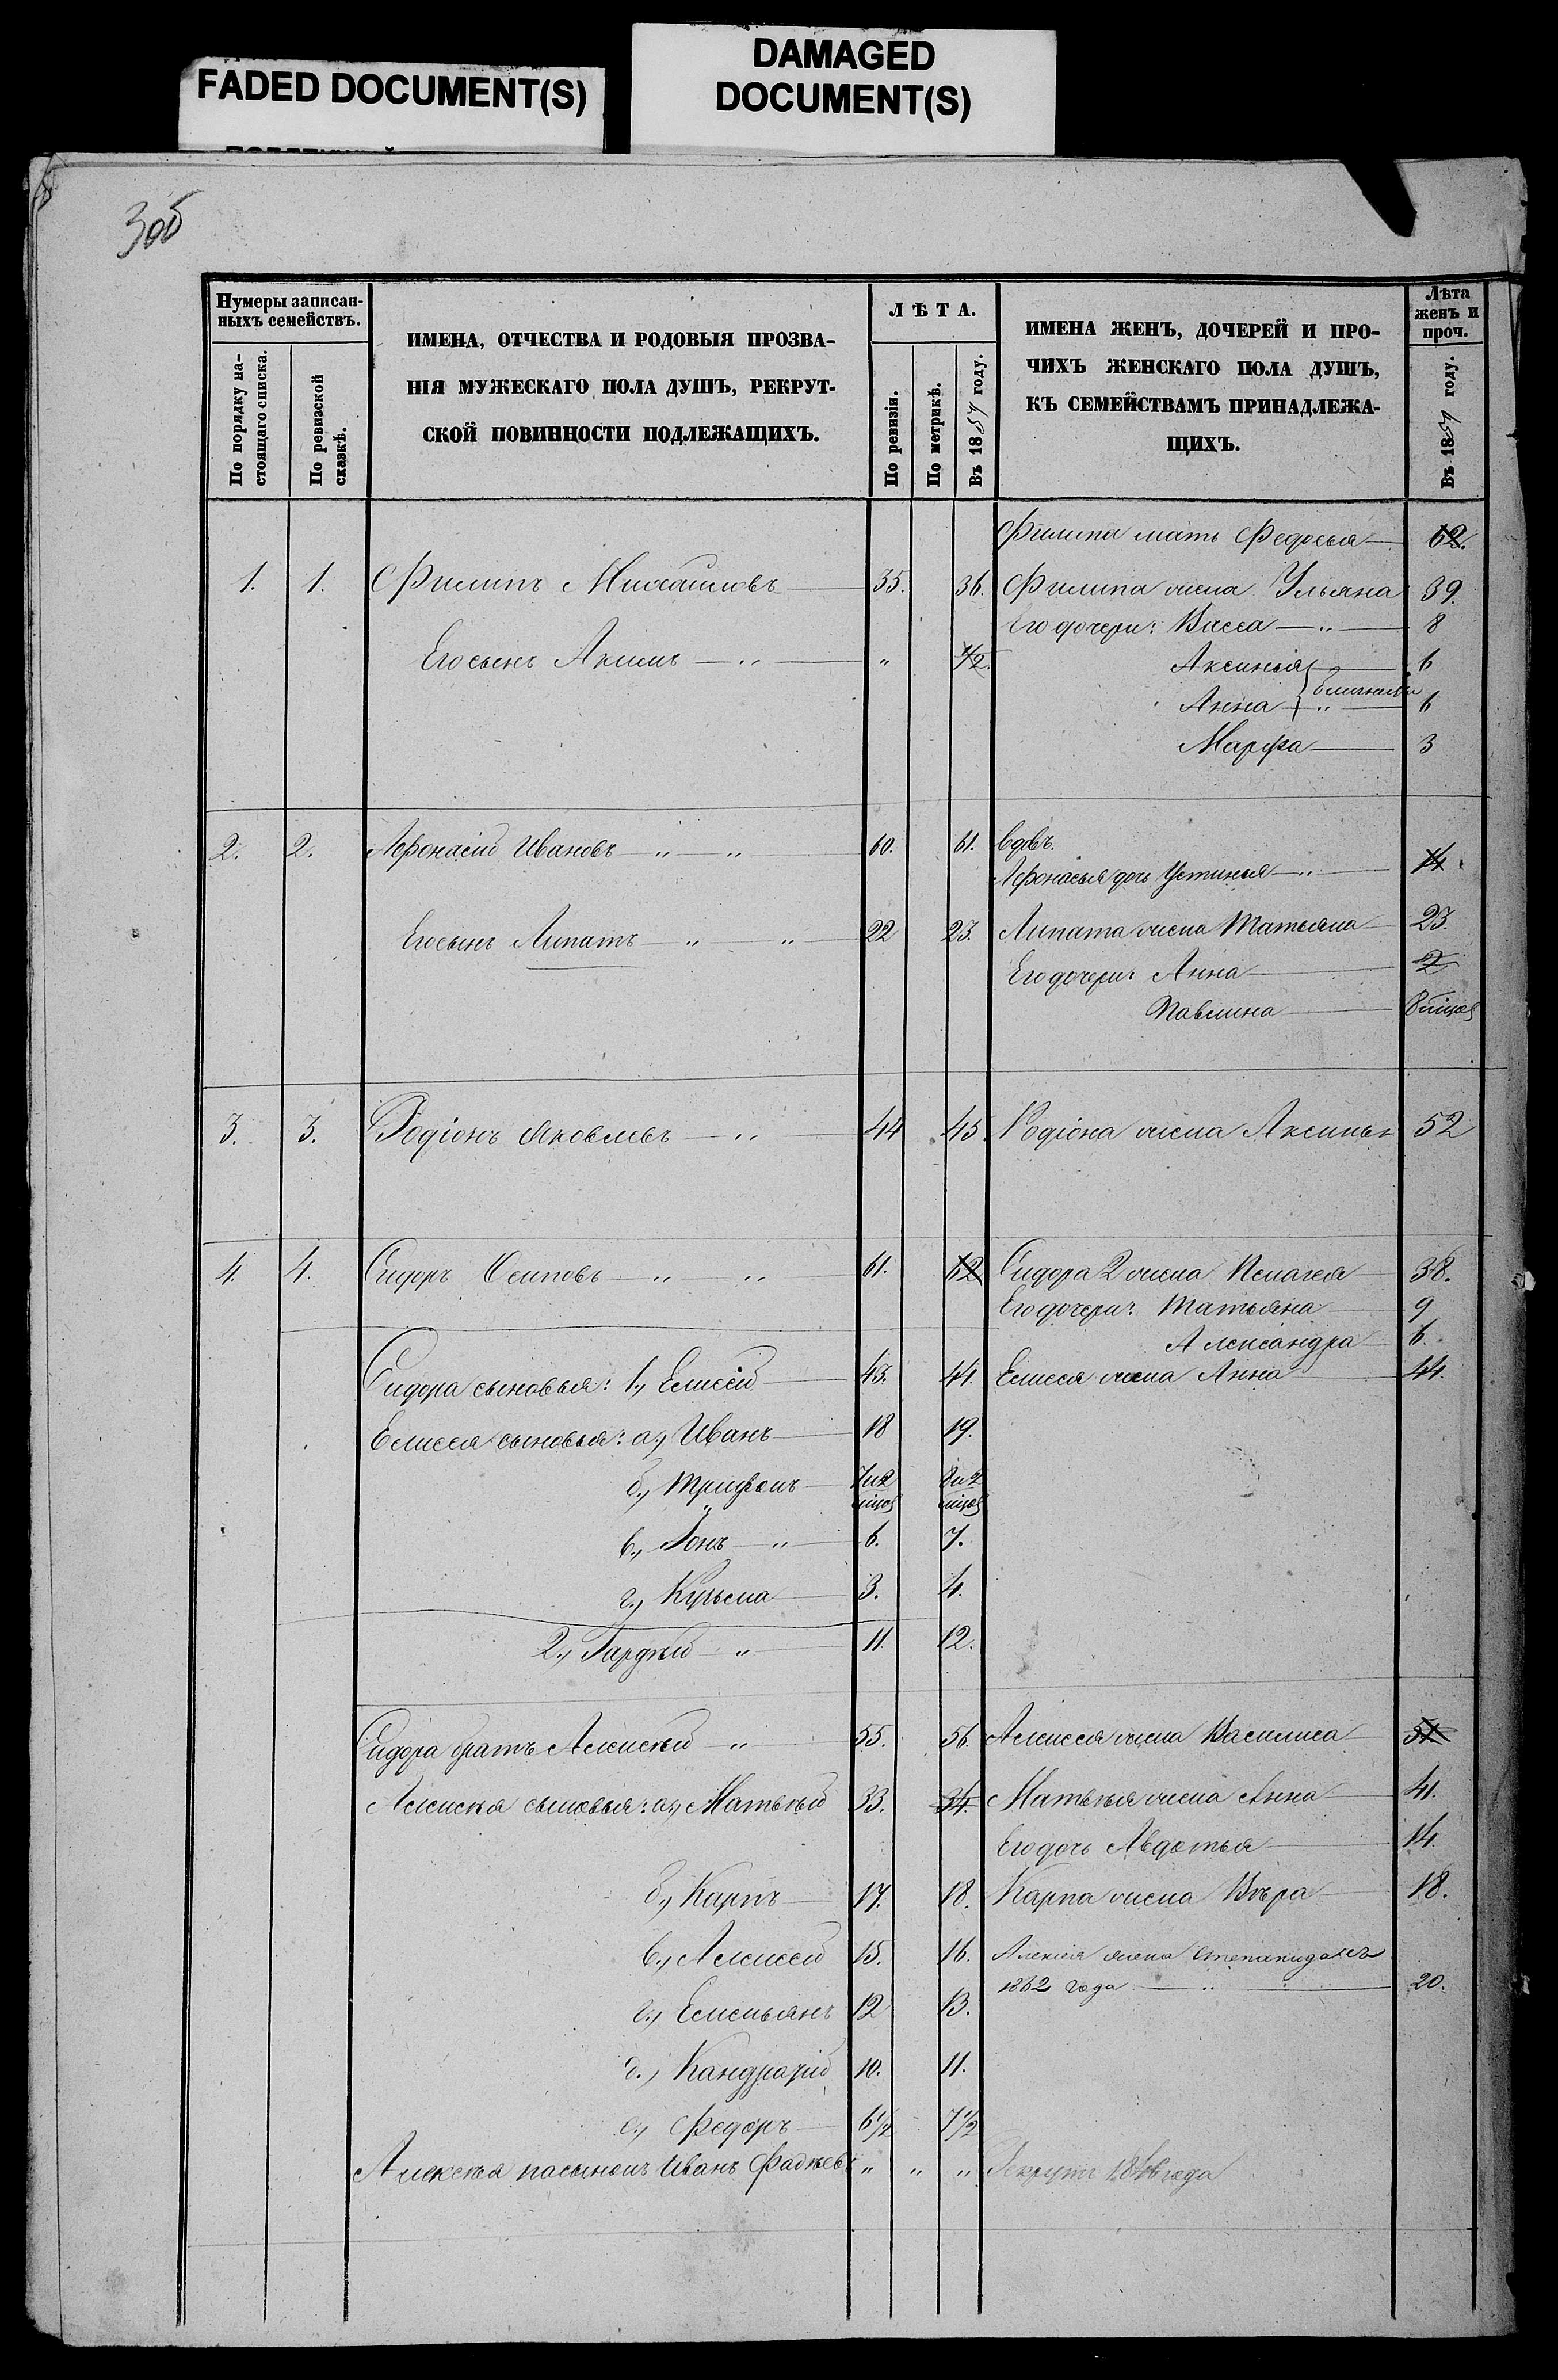 FADED DOCUMENT(S)
DAMAGED
DOCUMENT(S)
306
Нумеры записан-
ныхъ семействъ.
По порядку на-
стоящаго списка.
По ревизской
сказкѣ.
ИМЕНА, ОТЧЕСТВА И РОДОВЫЯ ПРОЗВА-
НІЯ МУЖЕСКАГО ПОЛА ДУШЪ, РЕКРУТ-
СКОЙ ПОВИННОСТИ ПОДЛЕЖАЩИХЪ.
ЛѢТА.
По ревизіи.
По метрикѣ.
Въ 1859 году.
ИМЕНА ЖЕНЪ, ДОЧЕРЕЙ И ПРО-
ЧИХЪ ЖЕНСКАГО ПОЛА ДУШЪ,
КЪ СЕМЕЙСТВАМЪ ПРИНАДЛЕЖА-
ЩИХЪ.
Лѣта
женъ и
проч.
Въ 1859 году.
Филипа мать Федосья 62.
1. 1. Филипъ Михайловъ 35. 36. Филипа жена Ульяна 39.
Его дочери: Васса — „ — 8
Его сынъ Акимъ — „ — „ 1/2. Аксинья 6
близнецы
Анна — „ — 6
Марфа 3
2. 2. Афонасій Ивановъ — „ — „ 60. 61. вдовъ.
Афонасья дочь Устинья — „ — 14.
Его сынъ Липатъ — „ — „ 22 23. Липата жена Татьяна 23.
Его дочери: Анна 2
Павлина 8 мѣсяц
3. 3. Родіонъ Яковлевъ — „ — 44 45. Родіона жена Аксинья 52
4. 4. Сидоръ Осиповъ — „ — „ 61. 62 Сидора 2 жена Пелагея 38.
Его дочери: Татьяна 9
Александра 6.
Сидора сыновья: 1., Елисей 43. 44. Елисея жена Анна 44.
Елисея сыновья: а., Иванъ 18 19.
б., Трифонъ 7 и 2 мѣсяц 8 и 2 мѣсяц
в., Іонъ — „ — 6. 7.
г., Кузьма 3. 4.
2., Гордѣй — „ — 11. 12.
Сидора братъ Алексѣй „ 55. 56. Алексея жена Василиса 51
Алексѣя сыновья: а., Матвѣй 33. 34. Матвѣя жена Анна 41.
Его дочь Авдотья 14.
б., Карпъ 17. 18. Карпа жена Вѣра 18.
в., Алексей 15. 16. Алексея жена Степанида съ
1862 года — „ — 20.
г., Емельянъ 12 13.
д., Кандратій 10. 11.
е., Федоръ 6 1/2 7 1/2
Алексѣя пасынокъ Иванъ Фадѣевъ „ „ „ Рекрутъ года